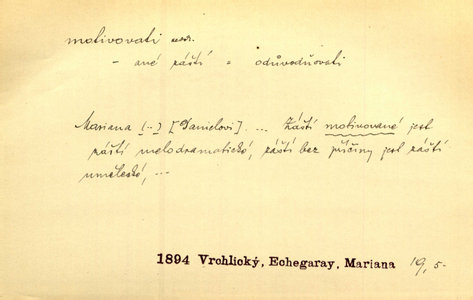 motivovati ned.
– ané záští = odůvodňovati
Mariana (..) [Danielovi]. ... Záští motivované jest
záští melodramatické, záští bez příčiny jest záští
umělecké, ...
1894 Vrchlický, Echegaray, Mariana 19, 5-